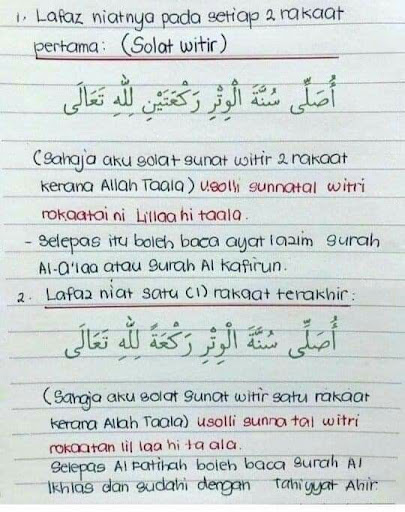 1. Lafaz niatnya pada setiap 2 rakaat
pertama: (Solat witir)
أُصَلِّى سُنَّةَ الْوِتْرِ رَكْعَتَيْنِ لِلّٰهِ تَعَالَى
(Sahaja aku solat sunat witir 2 rakaat
kerana Allah Taala) usolli sunnatal witri
rokaatai ni Lillaa hi taala.
- Selepas itu boleh baca ayat lazim surah
Al-A'laa atau Surah Al Kafirun.
2. Lafaz niat satu (1) rakaat terakhir:
أُصَلِّى سُنَّةَ الْوِتْرِ رَكْعَةً لِلّٰهِ تَعَالَى
(Sahaja aku solat sunat witir satu rakaat
kerana Allah Taala) usolli sunna tal witri
rokaatan lil laa hi ta ala.
Selepas Al Fatihah boleh baca surah Al
Ikhlas dan sudahi dengan tahiyyat Ahir.